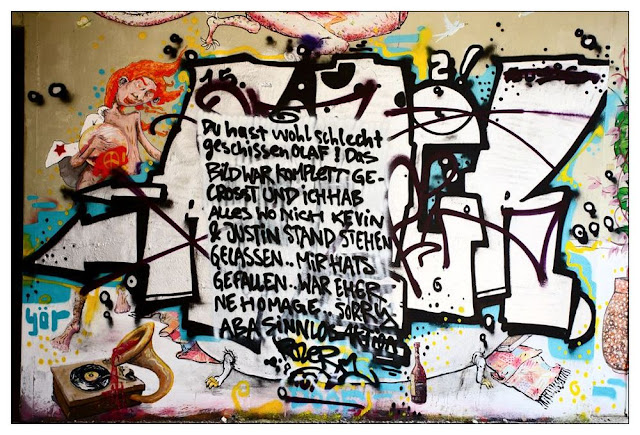 DU hast WOHL SCHLECHT
geschissen OLAF! DAS
BILD WAR KOMPLETT GE-
CROSST UND ICH HAB
ALLES WO NICH KEVIN
& JUSTIN STAND STEHEN
GELASSEN.. MIR HATS
GEFALLEN.. WAR EHER
NE HOMAGE.. SORRY
ABA SINNLOS
yör